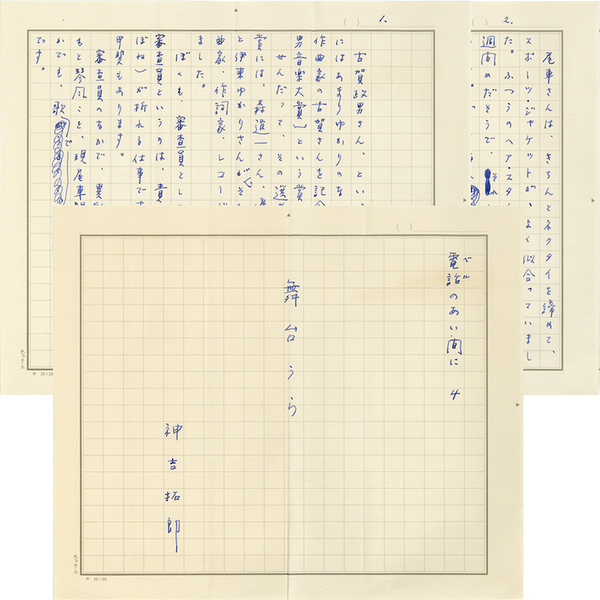 電話のあい間に 4
ベル
舞台うら
神吉拓郎
20×20
1.
古賀政男さん、とい
にはあまりゆかりのな
作曲家の古賀さんを記
男音楽大賞〕という賞
せんだって、その選
賞には、森進一さん、
と伊東ゆかりさんが
曲家、作詞家、レコー
ました。
ぼくも、審査員とし
審査員というのは、責
ぼね）が折れる仕事で
甲斐もあります。
審査員のなかで、異
もと琴風こと、現尾車
かでも、歌で
です。
20×20
2.
尾車さんは、きちんとネクタイを締めて、
スポーツ・ジャケットが、よく似合っていまし
た。ふつうのヘア・スタ
週間めだそうで、それ